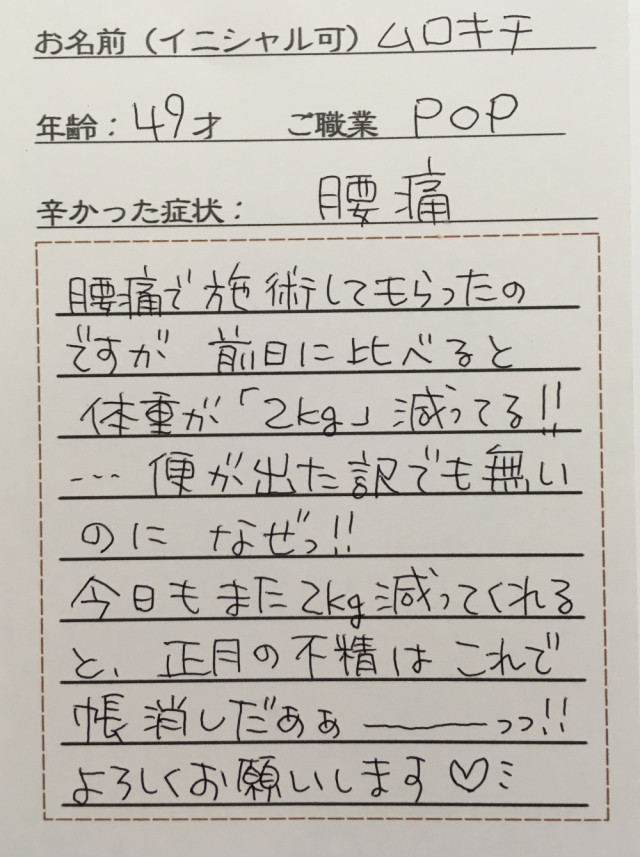 お名前（イニシャル可）ムロキチ
年齢：49才　ご職業 POP
辛かった症状：腰痛
腰痛で施術してもらったの
ですが 前日に比べると
体重が「2kg」減ってる!!
… 便が出た訳でも無い
のに なぜっ!!
今日もまた2kg減ってくれる
と、正月の不精は これで
帳消しだぁぁ ―――っっ!!
よろしくお願いします♡ミ